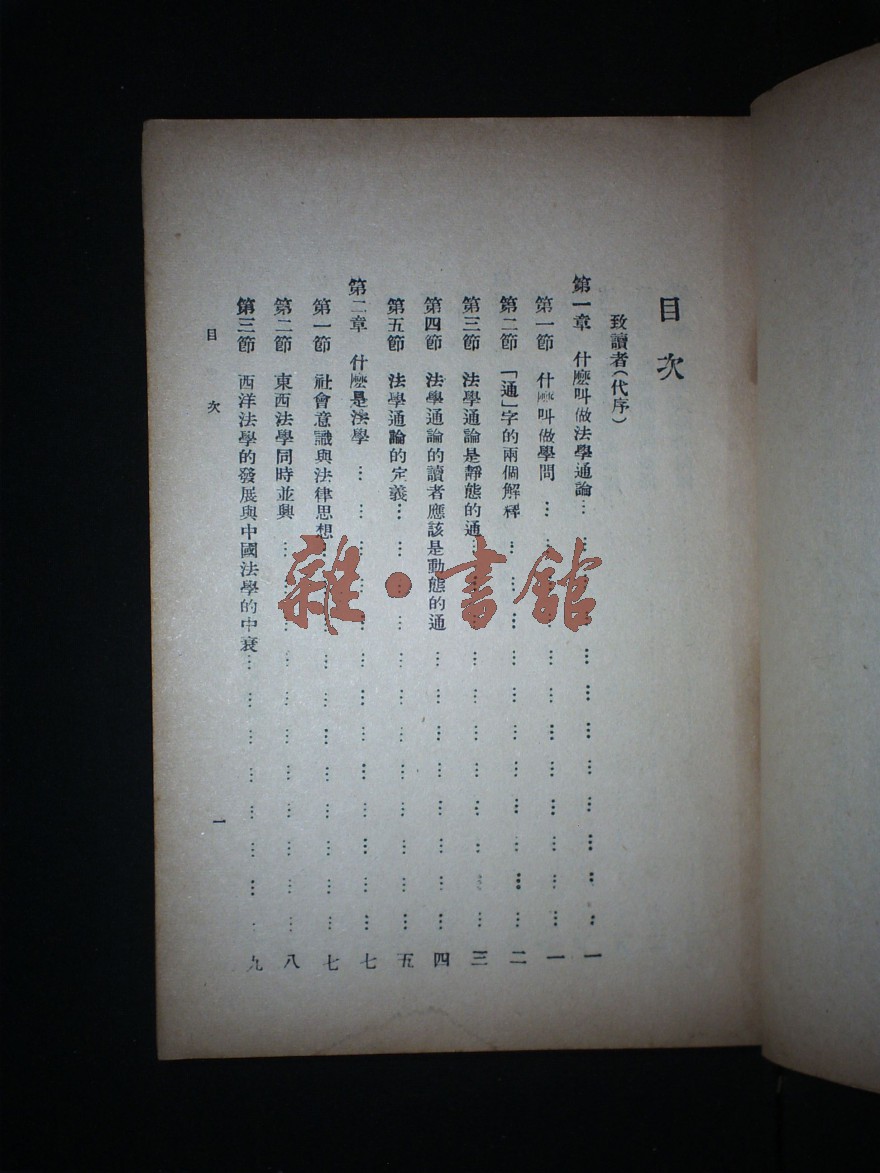 目次
致讀者（代序）
第一章 什麽叫做法學通論…………………………一
第一節 什麽叫做學問…………………………一
第二節 「通」字的兩個解釋…………………………二
第三節 法學通論是靜態的通…………………………三
第四節 法學通論的讀者應該是動態的通…………………………四
第五節 法學通論的定義…………………………五
第二章 什麽是法學…………………………七
第一節 社會意識與法律思想…………………………七
第二節 東西法學同時並興…………………………八
第三節 西洋法學的發展與中國法學的中衰…………………………九
目次 一
雜·書館